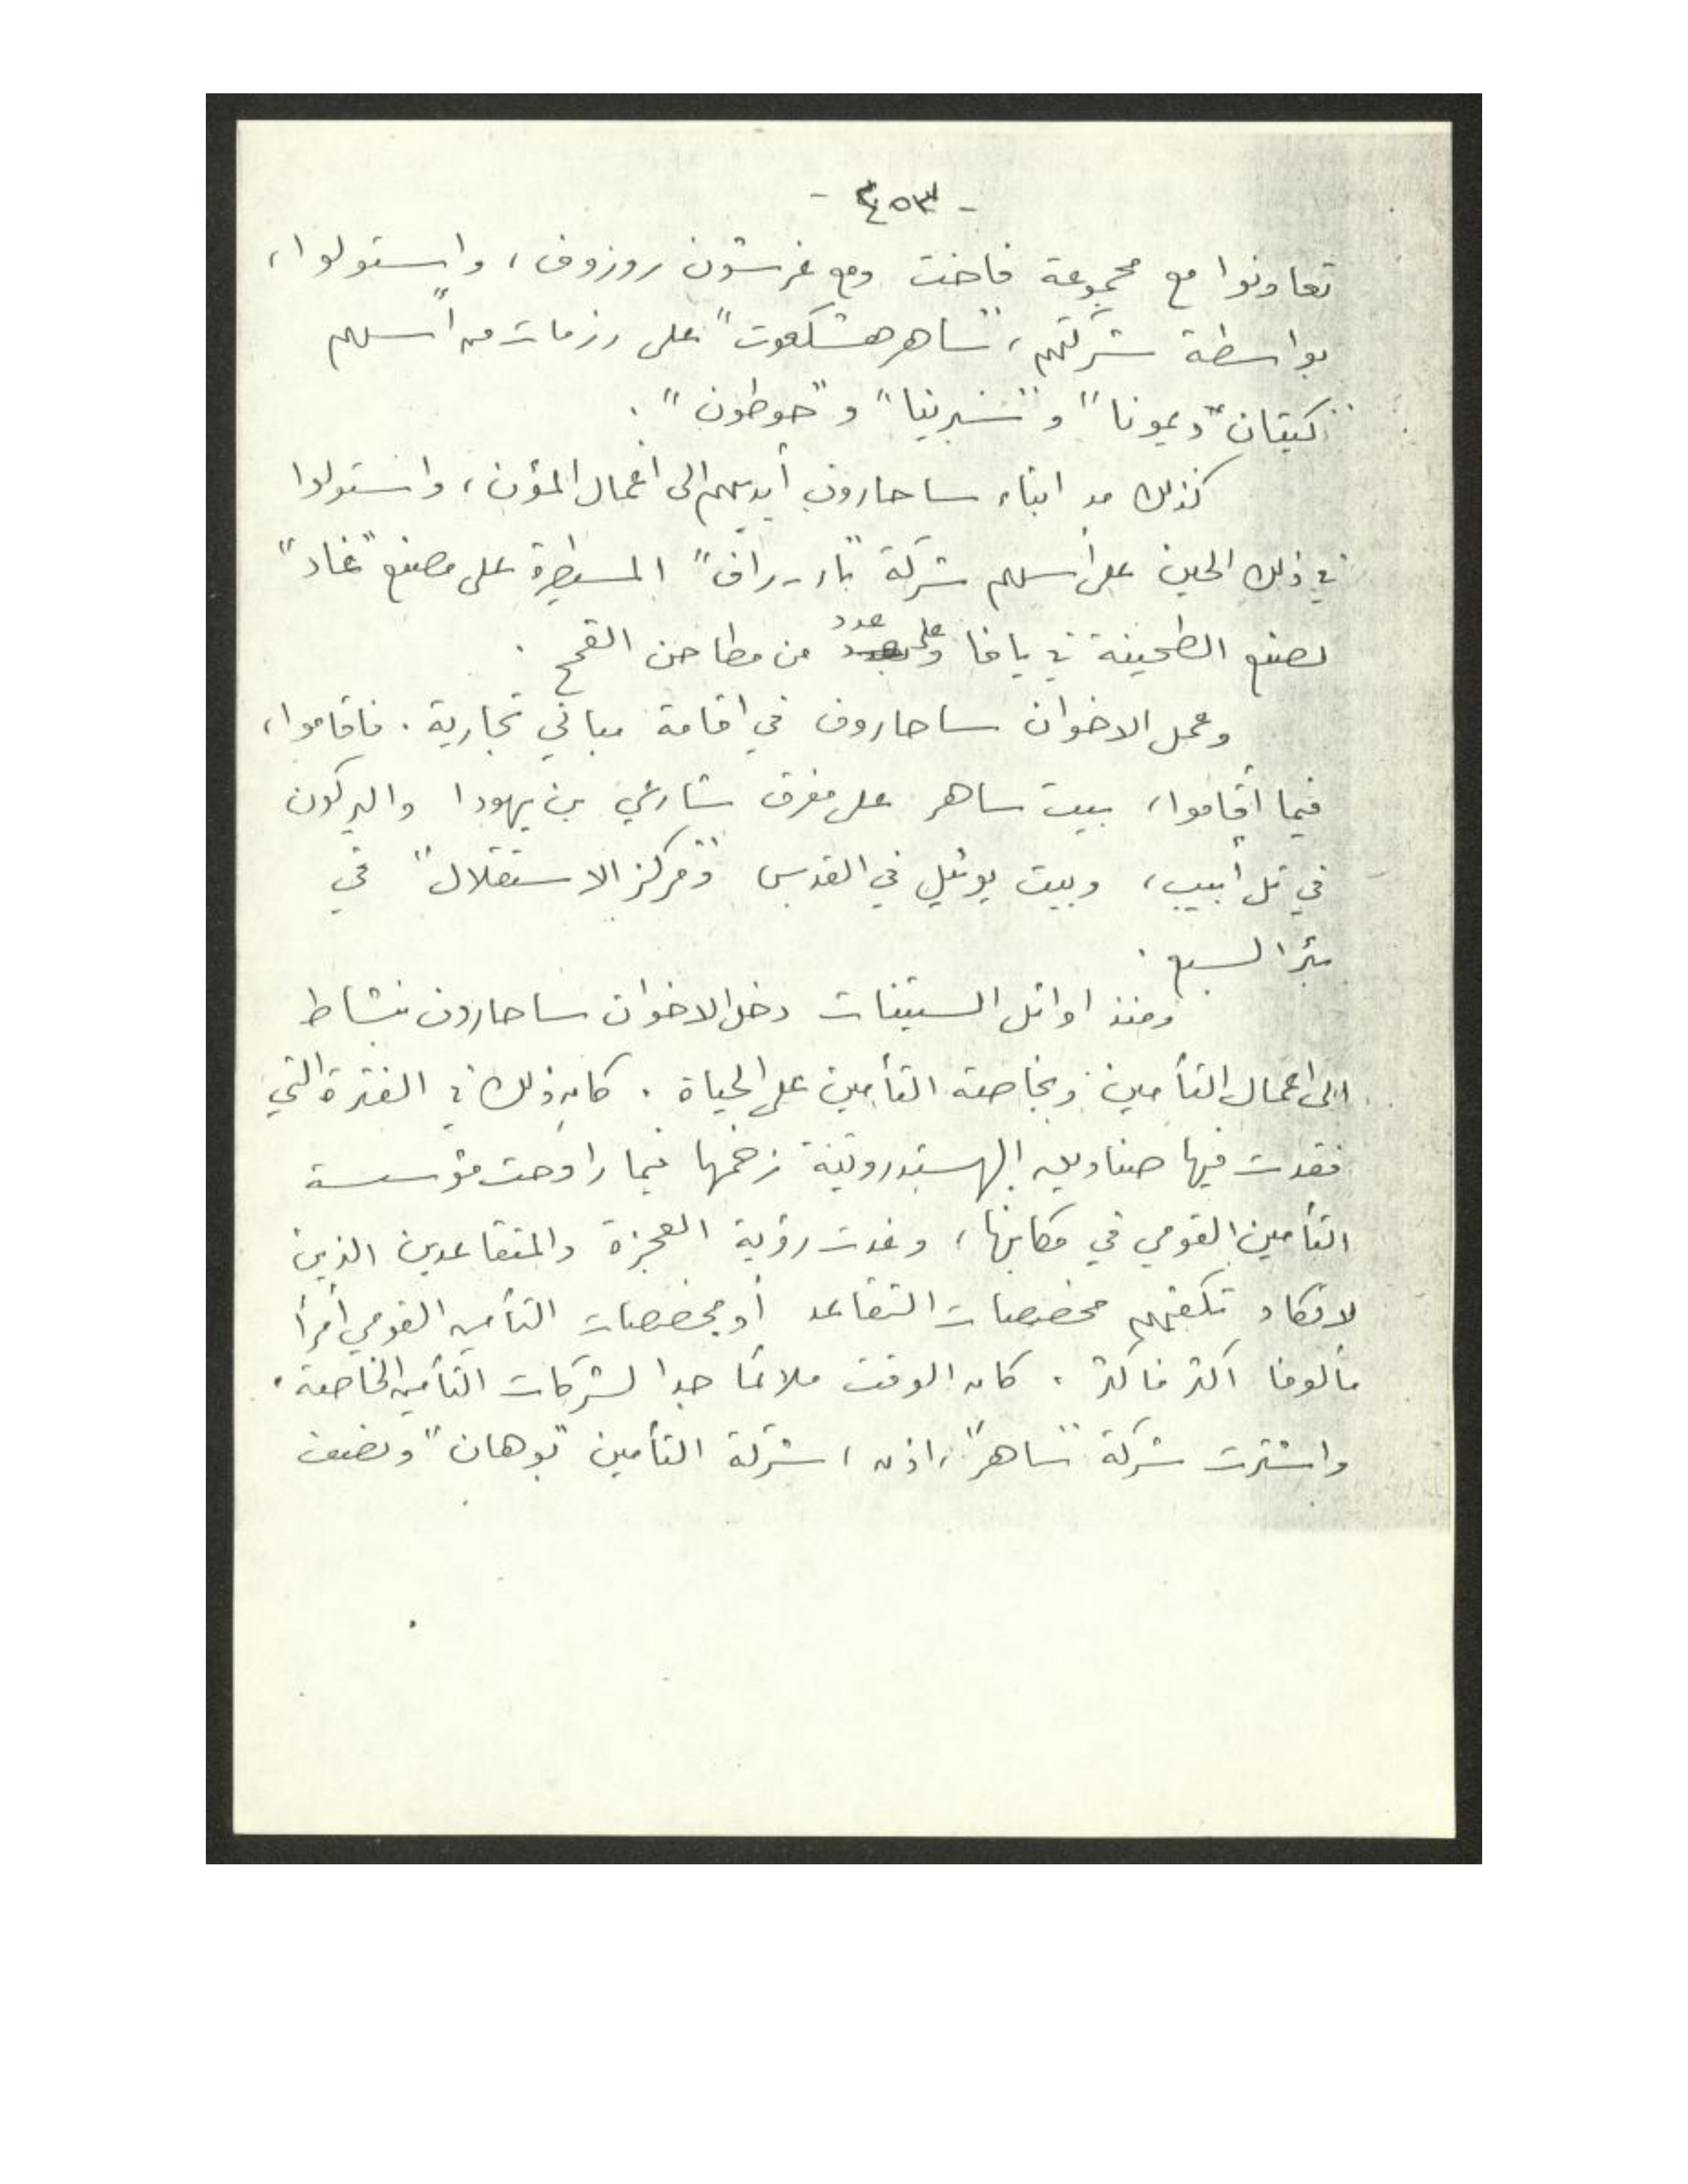 - ٤٥٣ -
تعاونوا مع مجموعة فاخت ومع غرشون روزوف، واستولوا،
بواسطة شركتهم، "ساهر هشكعوت" على رزمات من أسهم
"كيتان ديمونا" و"سبرينا" و"حوطون".
كذلك مد ابناء ساحاروف أيديهم الى أعمال المؤن، واستولوا
في ذلك الحين على أسهم شركة "بار-راف" المسيطرة على مصنع "غاد"
لصنع الطحينة في يافا وعلى عدد من مطاحن القمح.
وعمل الاخوان ساحاروف في اقامة مباني تجارية. فاقاموا،
فيما أقاموا، بيت ساهر على مفرق شارعي بن يهودا واليركون
في تل أبيب، وبيت يوئيل في القدس و"مركز الاستقلال" في
بئر السبع.
ومنذ اوائل الستينات دخل الاخوان ساحاروف بنشاط
الى اعمال التأمين وبخاصة التأمين على الحياة. كان ذلك في الفترة التي
فقدت فيها صناديق الهستدروتية زخمها فيما راوحت مؤسسة
التأمين القومي في مكانها، وغدت رؤية العجزة والمتقاعدين الذين
لا تكاد تكفيهم مخصصات التقاعد أو مخصصات التأمين القومي أمرأ
مألوفا اكثر فاكثر. كان الوقت ملائما جدا لشركات التأمين الخاصة.
واشترت شركة "ساهر"، اذن، شركة التأمين "بوهان" ونصف